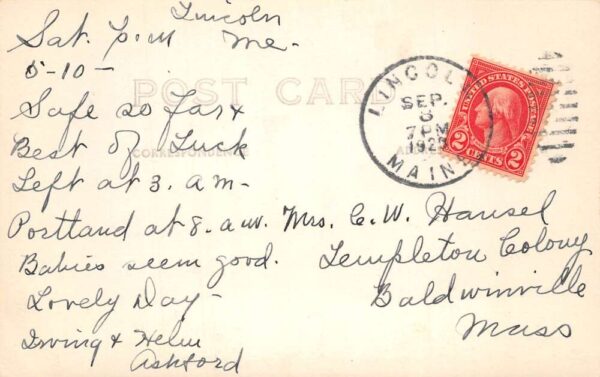 Lincoln
Sat. P.M Me-
5-10-
POST CARD
Safe so far &
Best of Luck
CORRESPONDENCE
Left at 3. am-
Portland at 8. a.m.
Babies seem good.
Lovely Day-
Irving & Helen
Ashford
LINCOLN
SEP.
8
7PM
MAINE
UNITED STATES POSTAGE
2 CENTS 2
Mrs. C. W. Hansel
Templeton Colony
Baldwinville
Mass